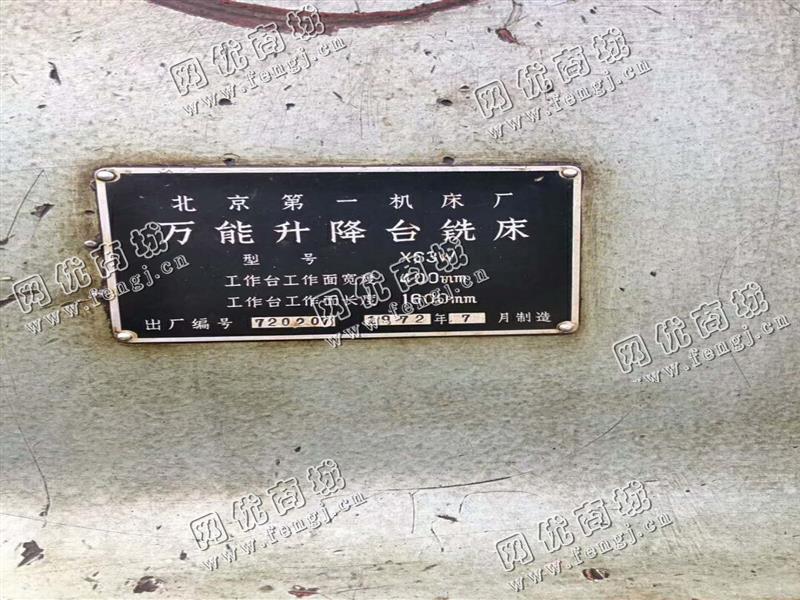 网优商城
www.fengj.cn
网优商城
www.fengj.cn
北京第一机床厂
万能升降台铣床
型号 X63W
工作台工作面宽度 400mm
工作台工作面长度 1600mm
出厂编号 72020 1972年7月制造
网优商城
www.fengj.cn
网优商城
www.fengj.cn
网优商城
www.fengj.cn
网优商城
www.fengj.cn